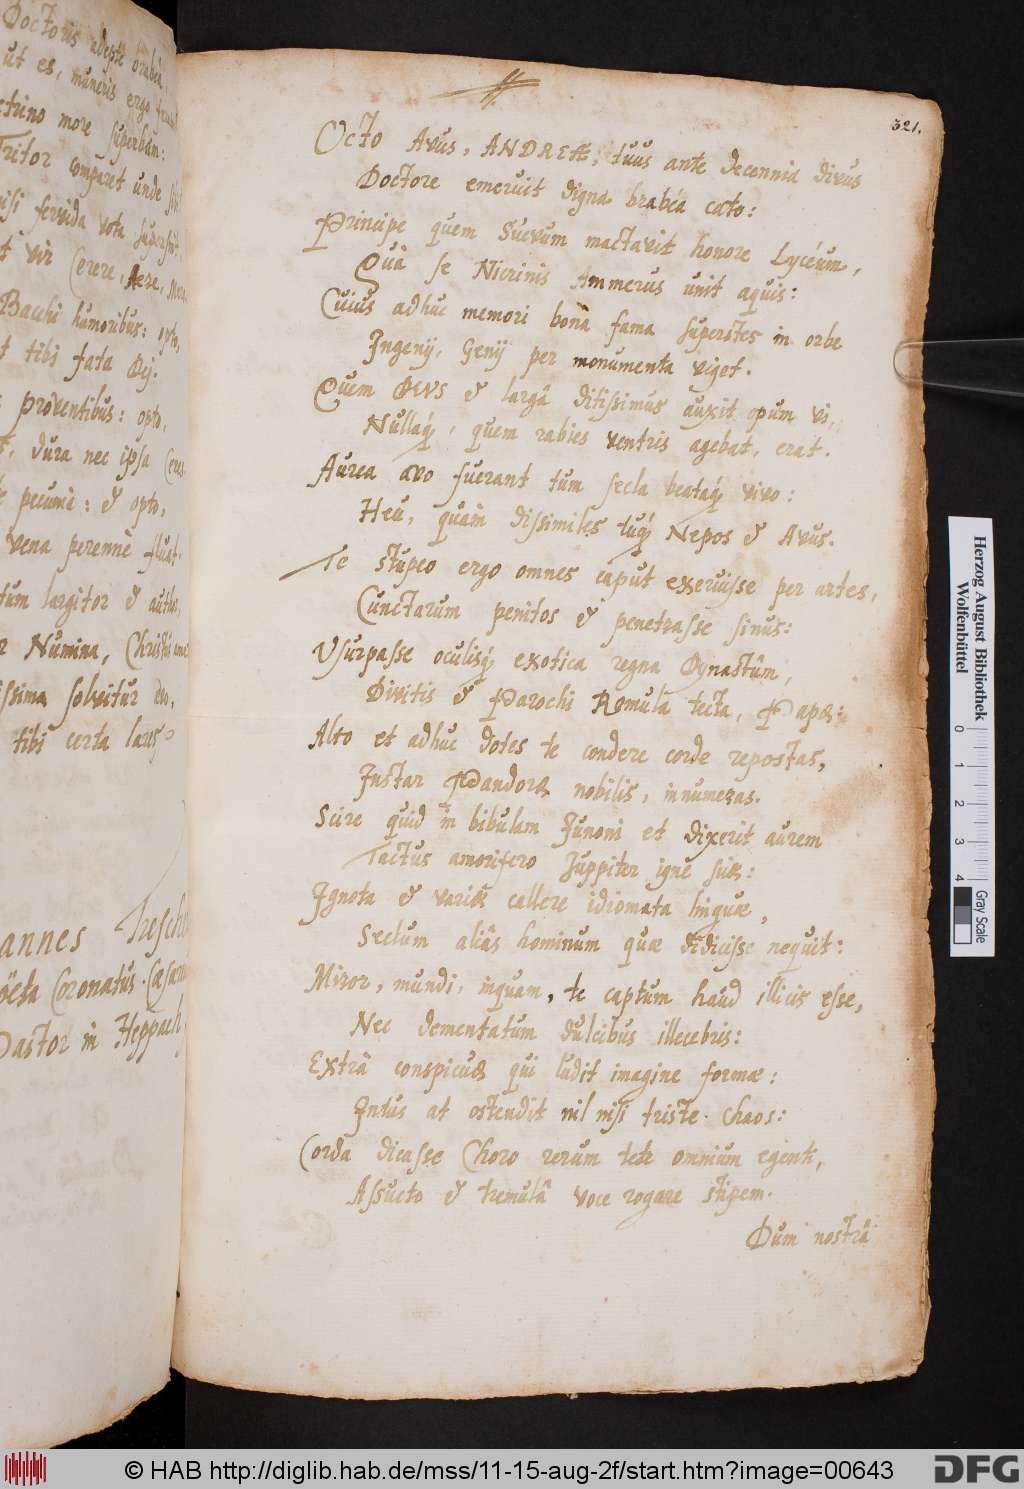 Doctoris adeptè brabéa
ut es, muneris ergo
more superbam:
Tritor comparet unde
nisi fervida vota supersit,
vir Cerere, Aere,
Bacchi humoribus: opto,
tibi fata Dei.
proventibus: opto,
dura nec ipsa Ceres
pecuniè: & opto,
vena perennè fluat.
largitor & author,
Numina, Christus
solvitur
tibi certa laus
annes Thesch
Coronatus. Cæsar
Pastor in Heppach
321.
Octo Avus, ANDREÆ, tuus ante decennia divus
Doctore emeruit digna brabéa cato:
Principe quem Suevum mactavit honore Lycéum,
Quà se Nicrinis Ammerus unit aquis:
Cuius adhuc memori bona fama superstes in orbe
Ingenij, Genij per monumenta viget.
Quem DEUS & largâ ditissimus auxit opum vi,
Nullaq́, quem rabies ventris agebat, erat.
Aurea avo fuerant tum secla beataq́ vivo:
Heu, quàm dissimiles tuq́ Nepos & Avus.
Te stupeo ergo omnes caput exeruisse per artes,
Cunctarum penitos & penetrasse sinus:
Usurpasse oculisq́ exotica regna Dynastûm,
Divitis & Parochi Romula tecta, Papæ:
Alto et adhuc dotes te condere corde repostas,
Instar Pandoræ nobilis, innumeras.
Scire quid in bibulam Junoni et dixerit aurem
Tactus amorifero Juppiter igne suæ:
Ignota & variæ callere idiomata linguæ,
Seclum aliàs hominum quæ didicisse nequit:
Miror, mundi, inquam, te captum haud illicis esse,
Nec dementatum dulcibus illecebris:
Extrà conspicuæ qui ludit imagine formæ:
Intus at ostendit nil nisi triste Chaos:
Corda dicasse Choro rerum te omnium egenti,
Assueto & tremulâ voce rogare stipem.
Dum nostrâ
Herzog August Bibliothek
Wolfenbüttel
0 1 2 3 4
Gray Scale
© HAB http://diglib.hab.de/mss/11-15-aug-2f/start.htm?image=00643
DFG